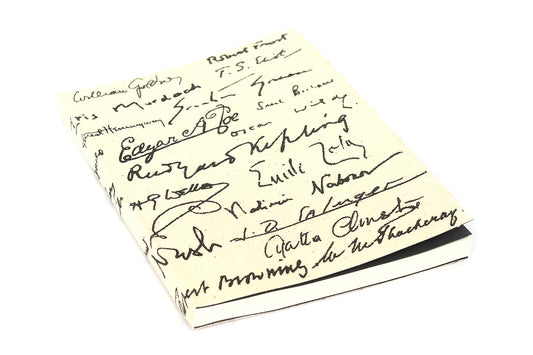 William Golding Robert Frost
Iris Murdoch T. S. Eliot
Ernest Hemingway Graham Greene
Edgar A Poe Saul Bellow
Oscar Wilde
Rudyard Kipling
H G Wells Emile Zola
Vladimir Nabokov
J. D. Salinger
Agatha Christie
Robert Browning W M Thackeray